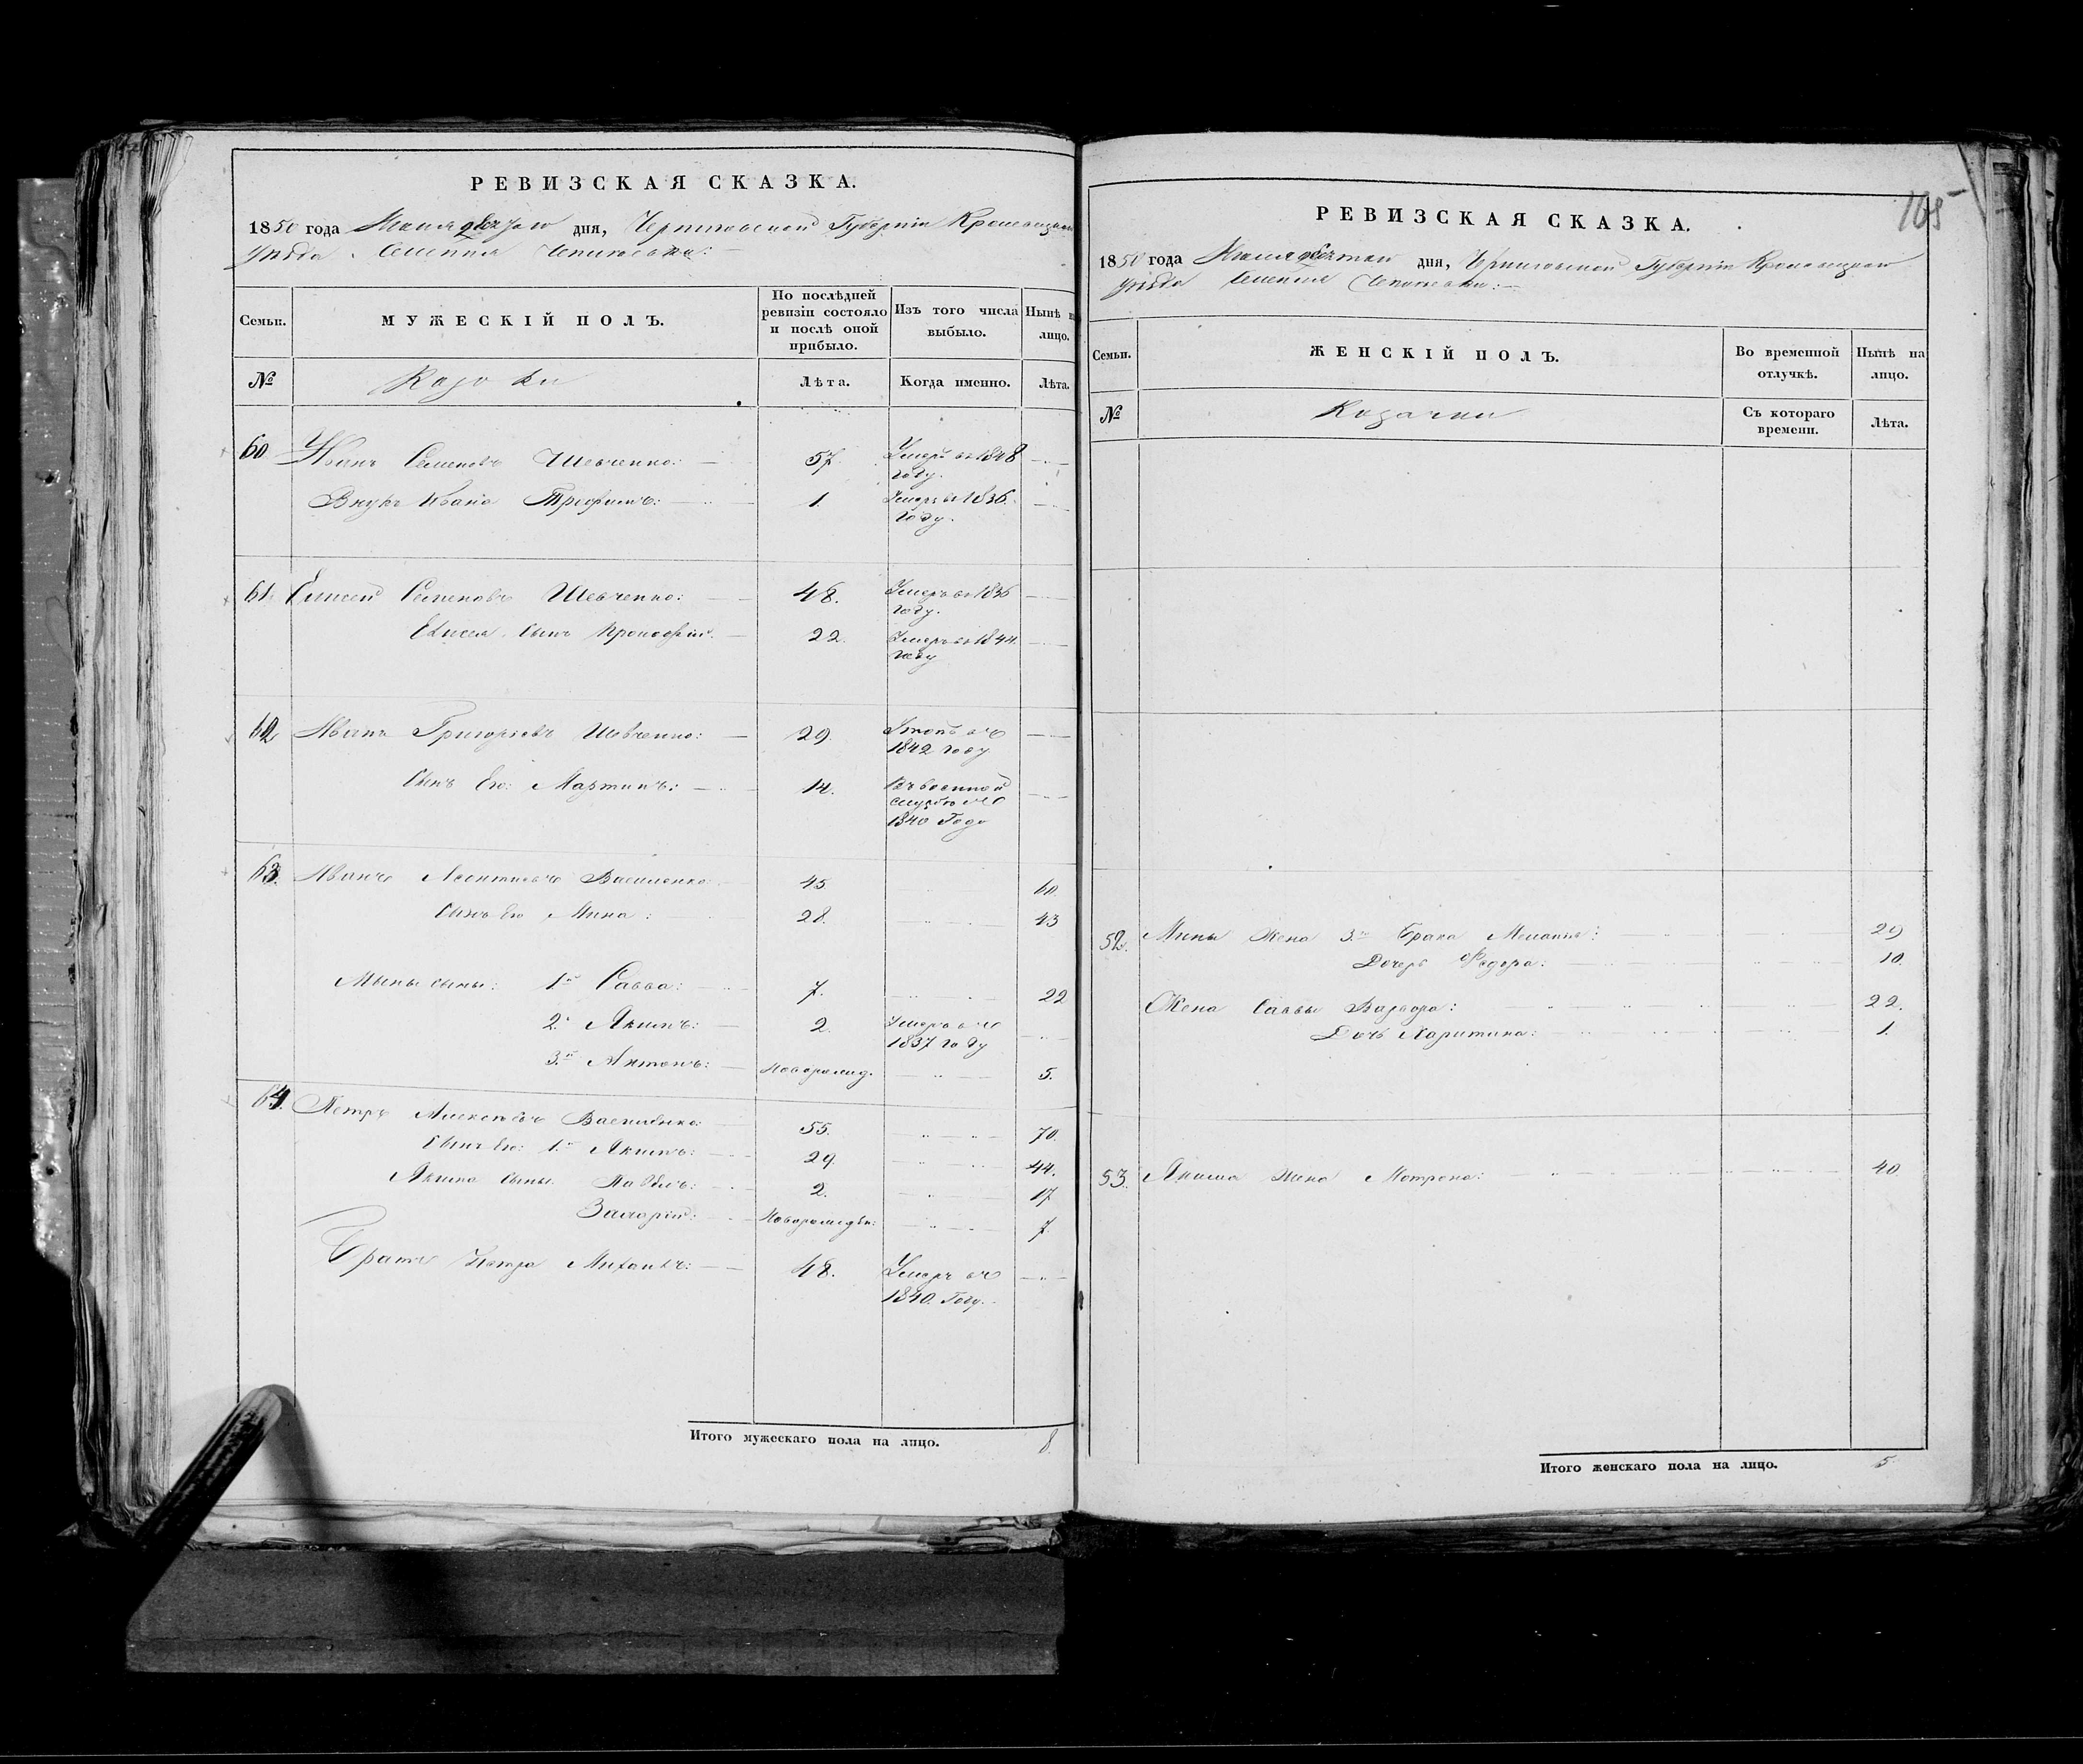 РЕВИЗСКАЯ СКАЗКА.
1850 года Маия дня, Черниговской Губернии Кролевецкаго
уѣзда. Селенія
Семьи.
МУЖЕСКІЙ ПОЛЪ.
По послѣдней ревизіи состояло и послѣ оной прибыло.
Изъ того числа выбыло.
Нынѣ на лицо.
№
Козаки
Лѣта.
Когда именно.
Лѣта.
60 Иванъ Семеновъ Шевченко: 57. Умеръ въ 1848
году.
Внукъ Ивана Трофимъ: 1. Умеръ въ 1836.
году.
61. Елисей Семеновъ Шевченко: 48. Умеръ въ 1836
году.
Елисея сынъ Прокофій: 22. Умеръ въ 1844
году
62 Иванъ Григорьевъ Шевченко: 29. въ
1842 году
Сынъ Его: Мартинъ: 14. Въ военной
службѣ съ
1840 Года
63. Иванъ Леонтьевъ Василенко 45. 60.
Сынъ Его Мина: 28. 43
Мины сыны: 1й Савва: 7. 22
2. Якимъ: 2. Умеръ въ
1837 году
3й Антонъ: Новорожд. 5.
64. Петръ Алексѣевъ Василенко: 55. 70.
Сынъ Его: 1й Якимъ: 29. 44.
Якима сыны. Павелъ: 2. 17
Захарій: Новорожден: 7.
Братъ Петра Михаилъ: 48. Умеръ въ
1840. Году.
Итого мужескаго пола на лицо. 8.
165
РЕВИЗСКАЯ СКАЗКА.
1850 года Маия дня, Черниговской Губерніи Кролевецкаго
уѣзда Селенія
Семьи.
ЖЕНСКІЙ ПОЛЪ.
Во временной отлучкѣ.
Нынѣ на лицо.
№
Козачки
Съ котораго времени.
Лѣта.
52. Мины Жена 3го брака Меланія: 29
Дочерь Федора: 10.
Жена Саввы Варвара: 22.
Дочь Харитина: 1.
53. Якима жена Мотрона: 40
Итого женскаго пола на лицо. 5